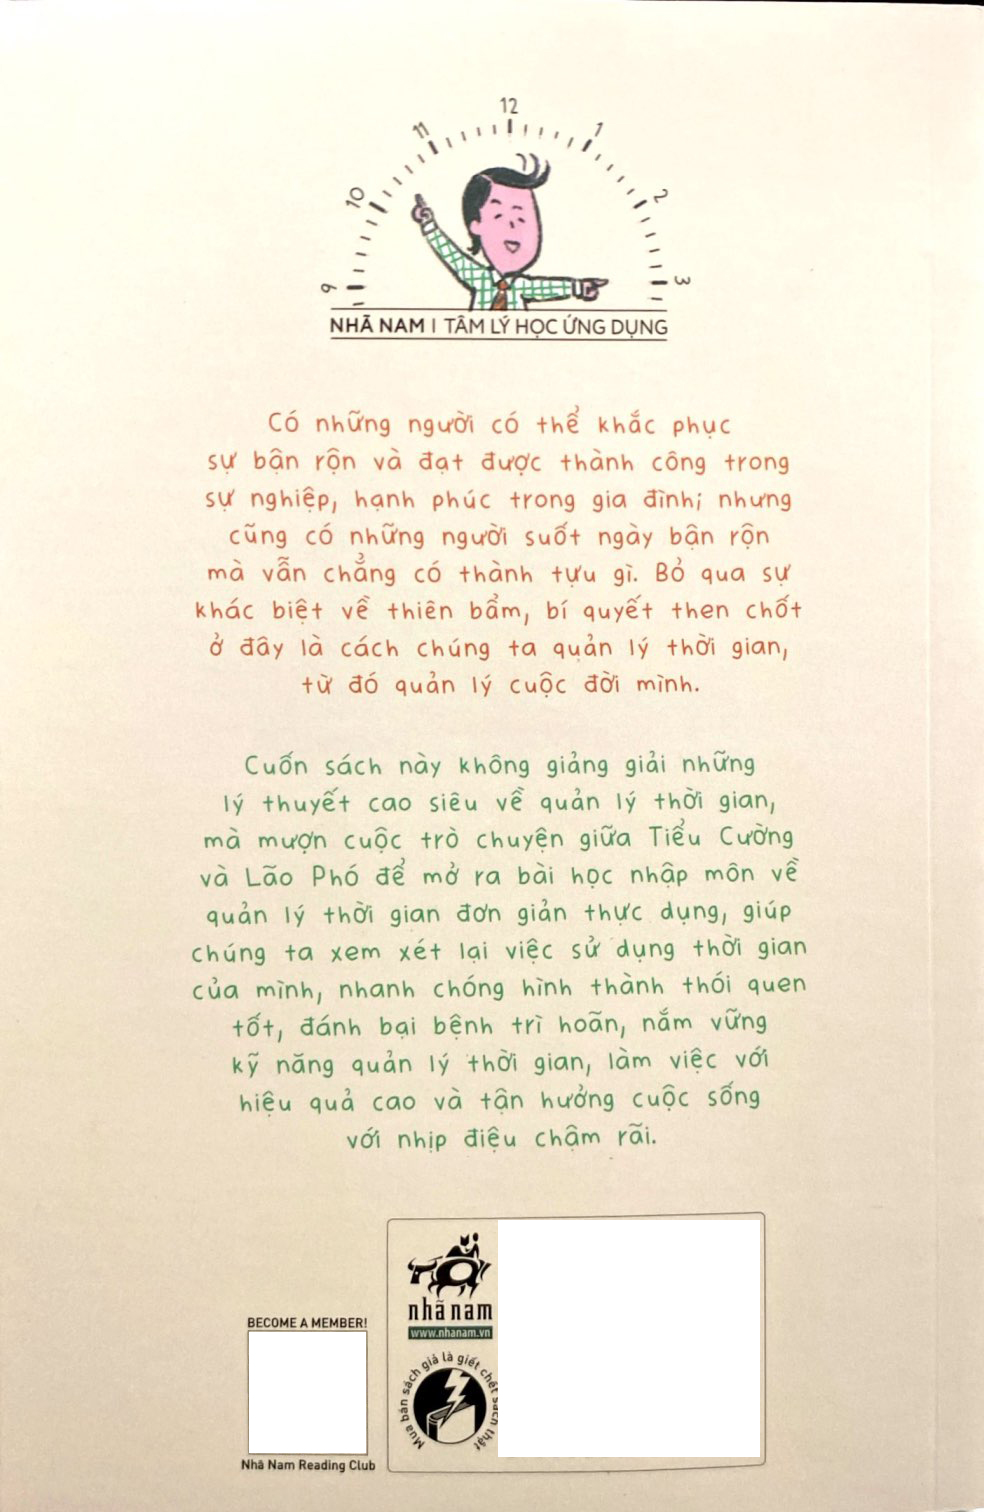 12
11
1
10
2
9
3
NHÃ NAM | TÂM LÝ HỌC ỨNG DỤNG
Có những người có thể khắc phục
sự bận rộn và đạt được thành công trong
sự nghiệp, hạnh phúc trong gia đình; nhưng
cũng có những người suốt ngày bận rộn
mà vẫn chẳng có thành tựu gì. Bỏ qua sự
khác biệt về thiên bẩm, bí quyết then chốt
ở đây là cách chúng ta quản lý thời gian,
từ đó quản lý cuộc đời mình.
Cuốn sách này không giảng giải những
lý thuyết cao siêu về quản lý thời gian,
mà mượn cuộc trò chuyện giữa Tiểu Cường
và Lão Phó để mở ra bài học nhập môn về
quản lý thời gian đơn giản thực dụng, giúp
chúng ta xem xét lại việc sử dụng thời gian
của mình, nhanh chóng hình thành thói quen
tốt, đánh bại bệnh trì hoãn, nắm vững
kỹ năng quản lý thời gian, làm việc với
hiệu quả cao và tận hưởng cuộc sống
với nhịp điệu chậm rãi.
nhã nam
www.nhanam.vn
Mua bán sách giả là giết chết sách thật
BECOME A MEMBER!
Nhã Nam Reading Club